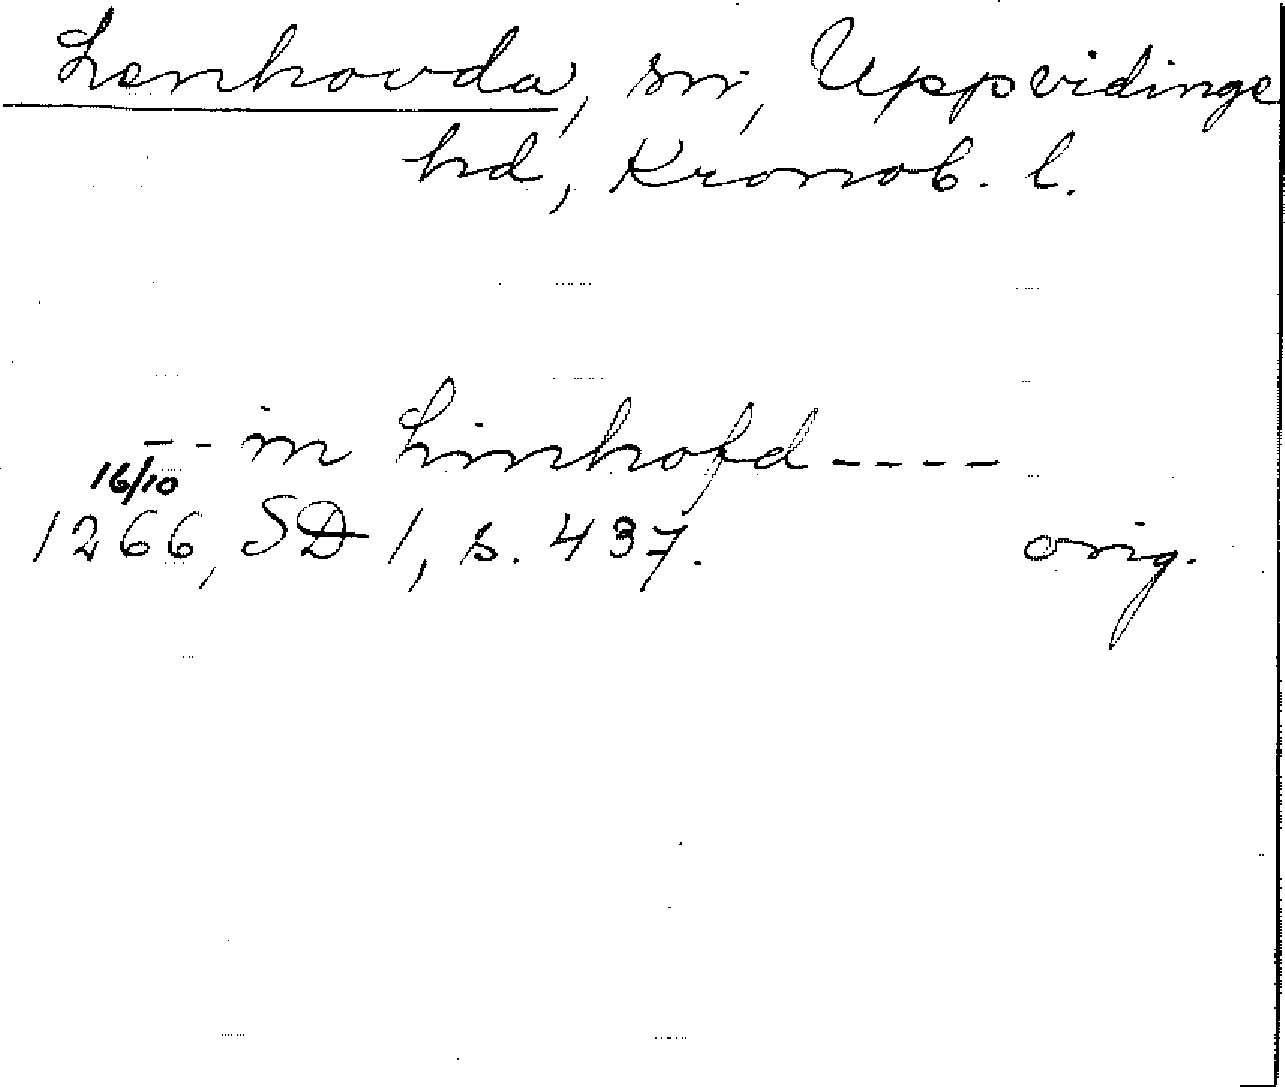 Lenhovda, sn, Uppvidinge
hd, Kronob. l.
-- in Linhofd ----
16/10
1266, SD 1, s. 437. orig.